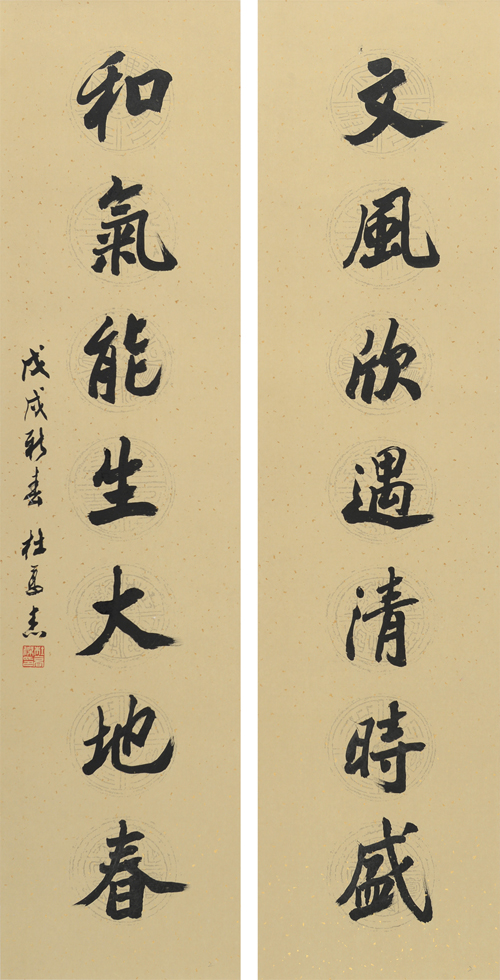 文風欣遇清時盛
和氣能生大地春
戊戌新春 杜